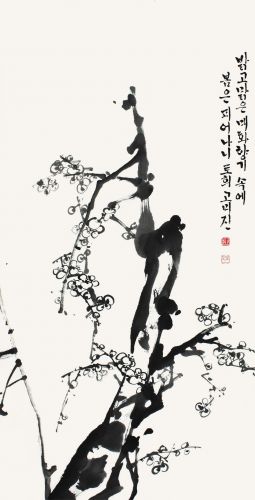 밝고 맑은 매화향기 속에
봄은 피어나니 토회 고미진